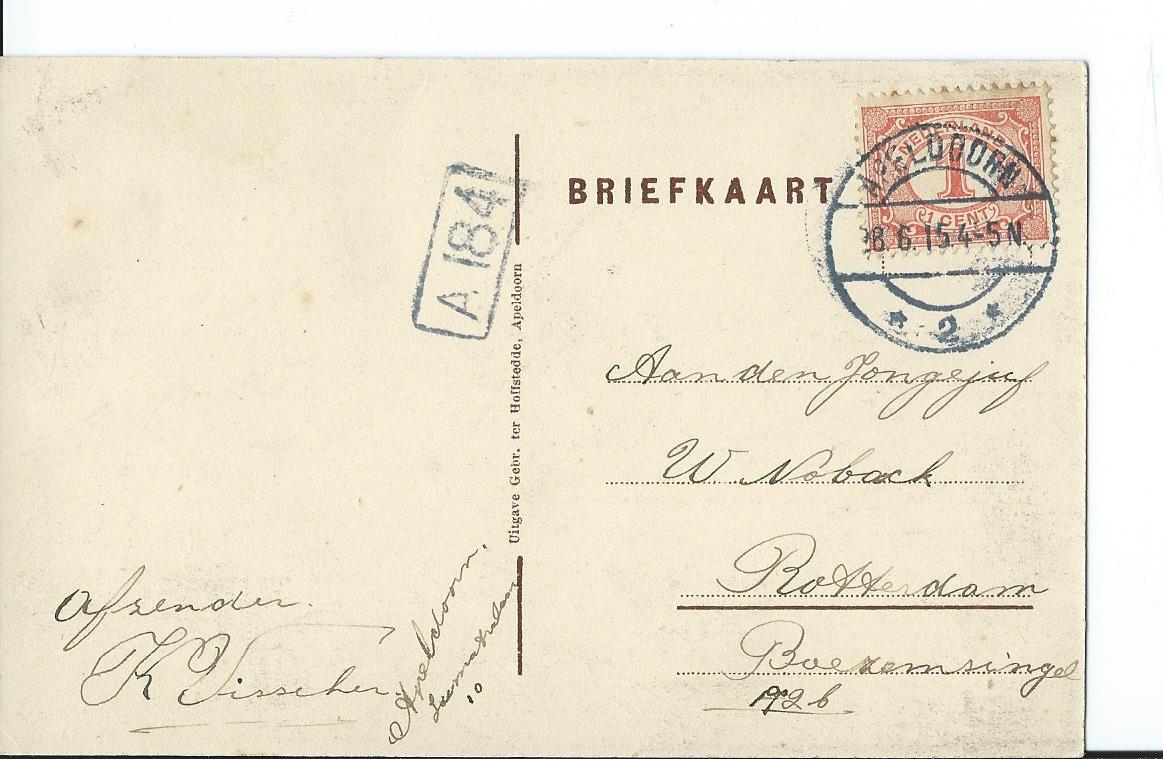 BRIEFKAART
A 184
NEDERLAND
1
1 CENT
APELDOORN
8.6.15 4-5N.
* 2 *
Uitgave Gebr. ter Hoffstedde, Apeldoorn
Aan den Jongejuf
W Noback
Rotterdam
Boezemsingel
192 b
Afzender.
K Visscher
Apeldoorn.
10